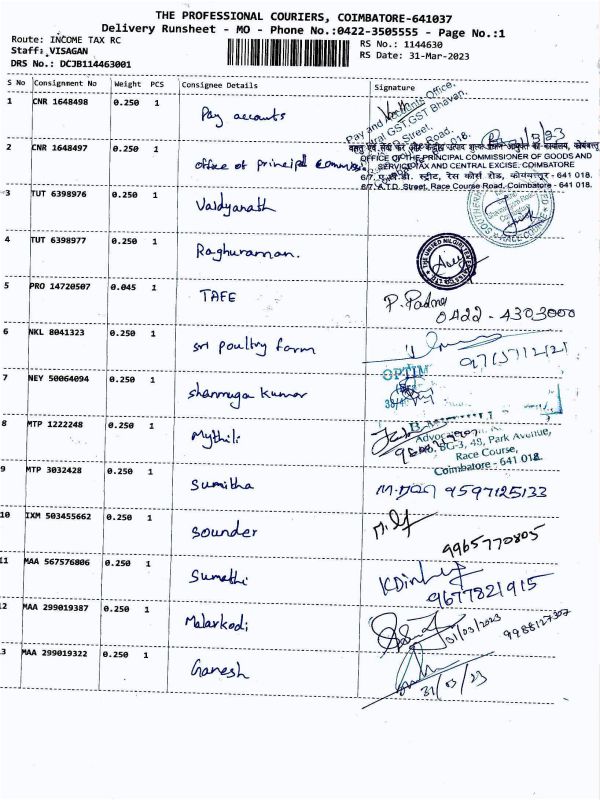 THE PROFESSIONAL COURIERS, COIMBATORE-641037
Delivery Runsheet - MO - Phone No.:0422-3505555 - Page No.:1
Route: INCOME TAX RC
Staff: VISAGAN
DRS No.: DCJB114463001
RS No.: 1144630
RS Date: 31-Mar-2023
S No Consignment No Weight PCS Consignee Details Signature
1 CNR 1648498 0.250 1 Pay accounts
Pay and Accounts Office,
GST Bhavan,
2 CNR 1648497 0.250 1 office of principal
OFFICE OF THE PRINCIPAL COMMISSIONER OF GOODS AND
SERVICE TAX AND CENTRAL EXCISE: COIMBATORE
6/7, ए.टी.डी. स्ट्रीट, रेस कोर्स रोड, कोयंबत्तूर - 641 018.
6/7, A.T.D. Street, Race Course Road, Coimbatore - 641 018.
3 TUT 6398976 0.250 1 Vaidyanath
RACE COURSE
4 TUT 6398977 0.250 1 Raghuraman.
5 PRO 14720507 0.045 1 TAFE P. Padma
0422-4303000
6 NKL 8041323 0.250 1 sri poultry farm
7 NEY 50064094 0.250 1 shanmuga kumar
OPTIM
8 MTP 1222248 0.250 1 Mythili
Advoca
No. BG-3, 48, Park Avenue,
Race Course,
Coimbatore - 641 018.
9 MTP 3032428 0.250 1 Sumitha 9597125133
10 IXM 503455662 0.250 1 Sounder
9965770805
11 MAA 567576806 0.250 1 Sumathi
9677821915
12 MAA 299019387 0.250 1 Malarkodi
31/03/2023
3 MAA 299019322 0.250 1 Ganesh
31/03/23